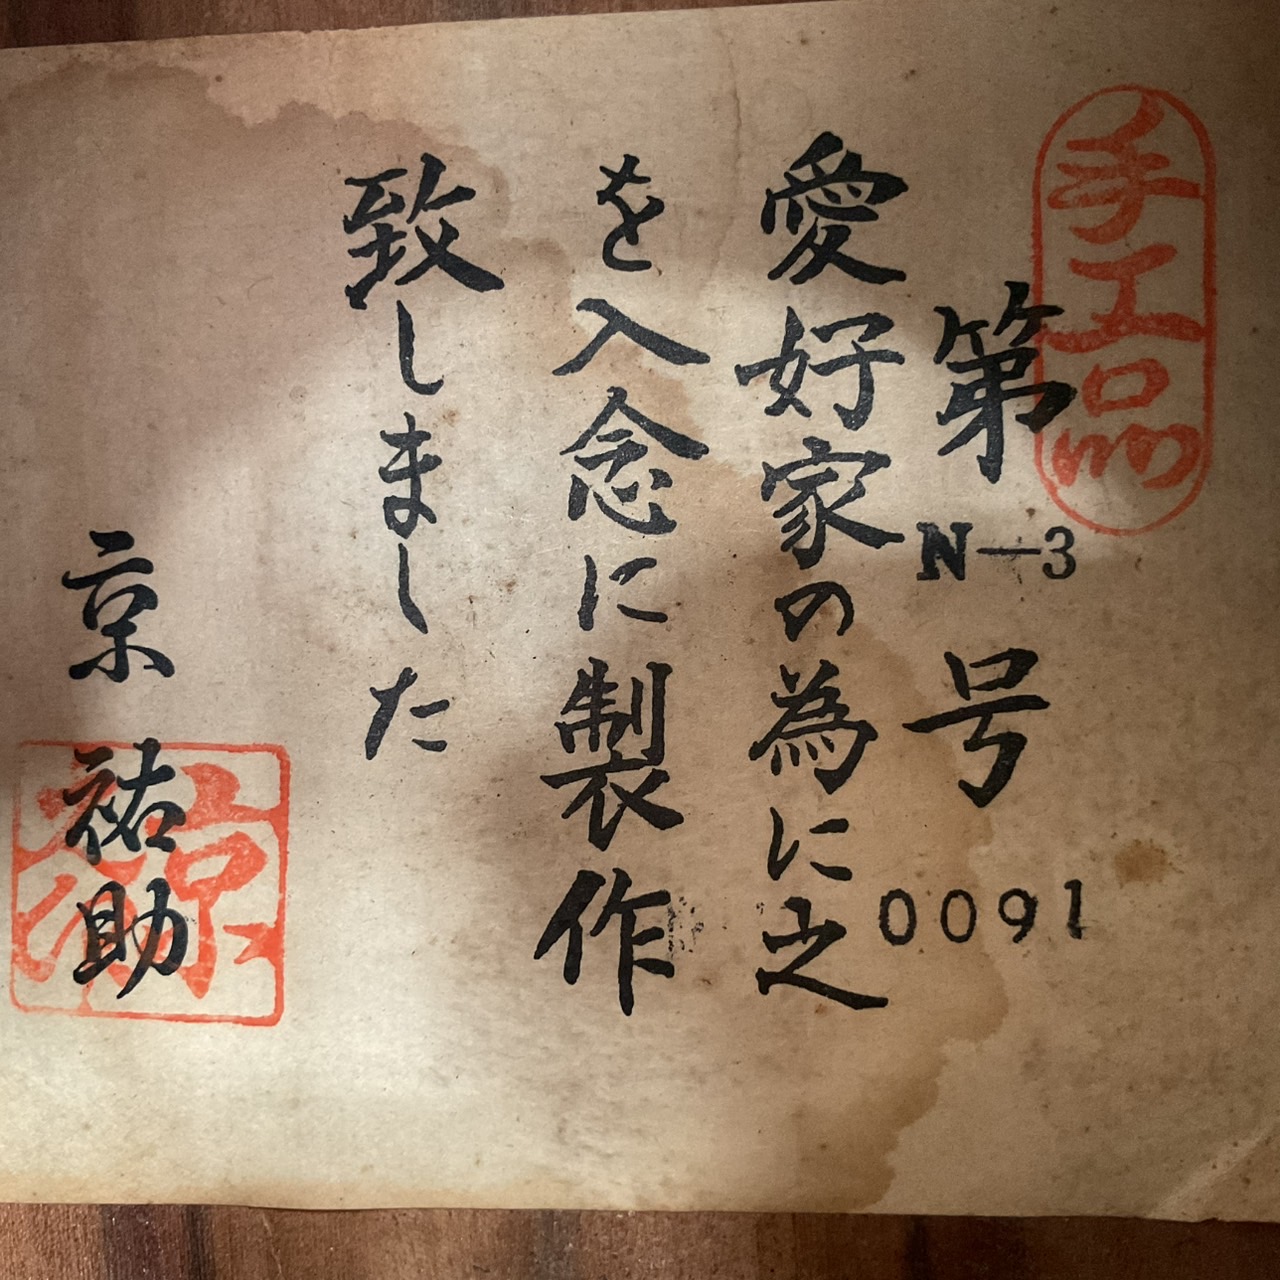 手工品
第 N-3 号
0091
愛好家の為に之
を入念に製作
致しました
京 祐助